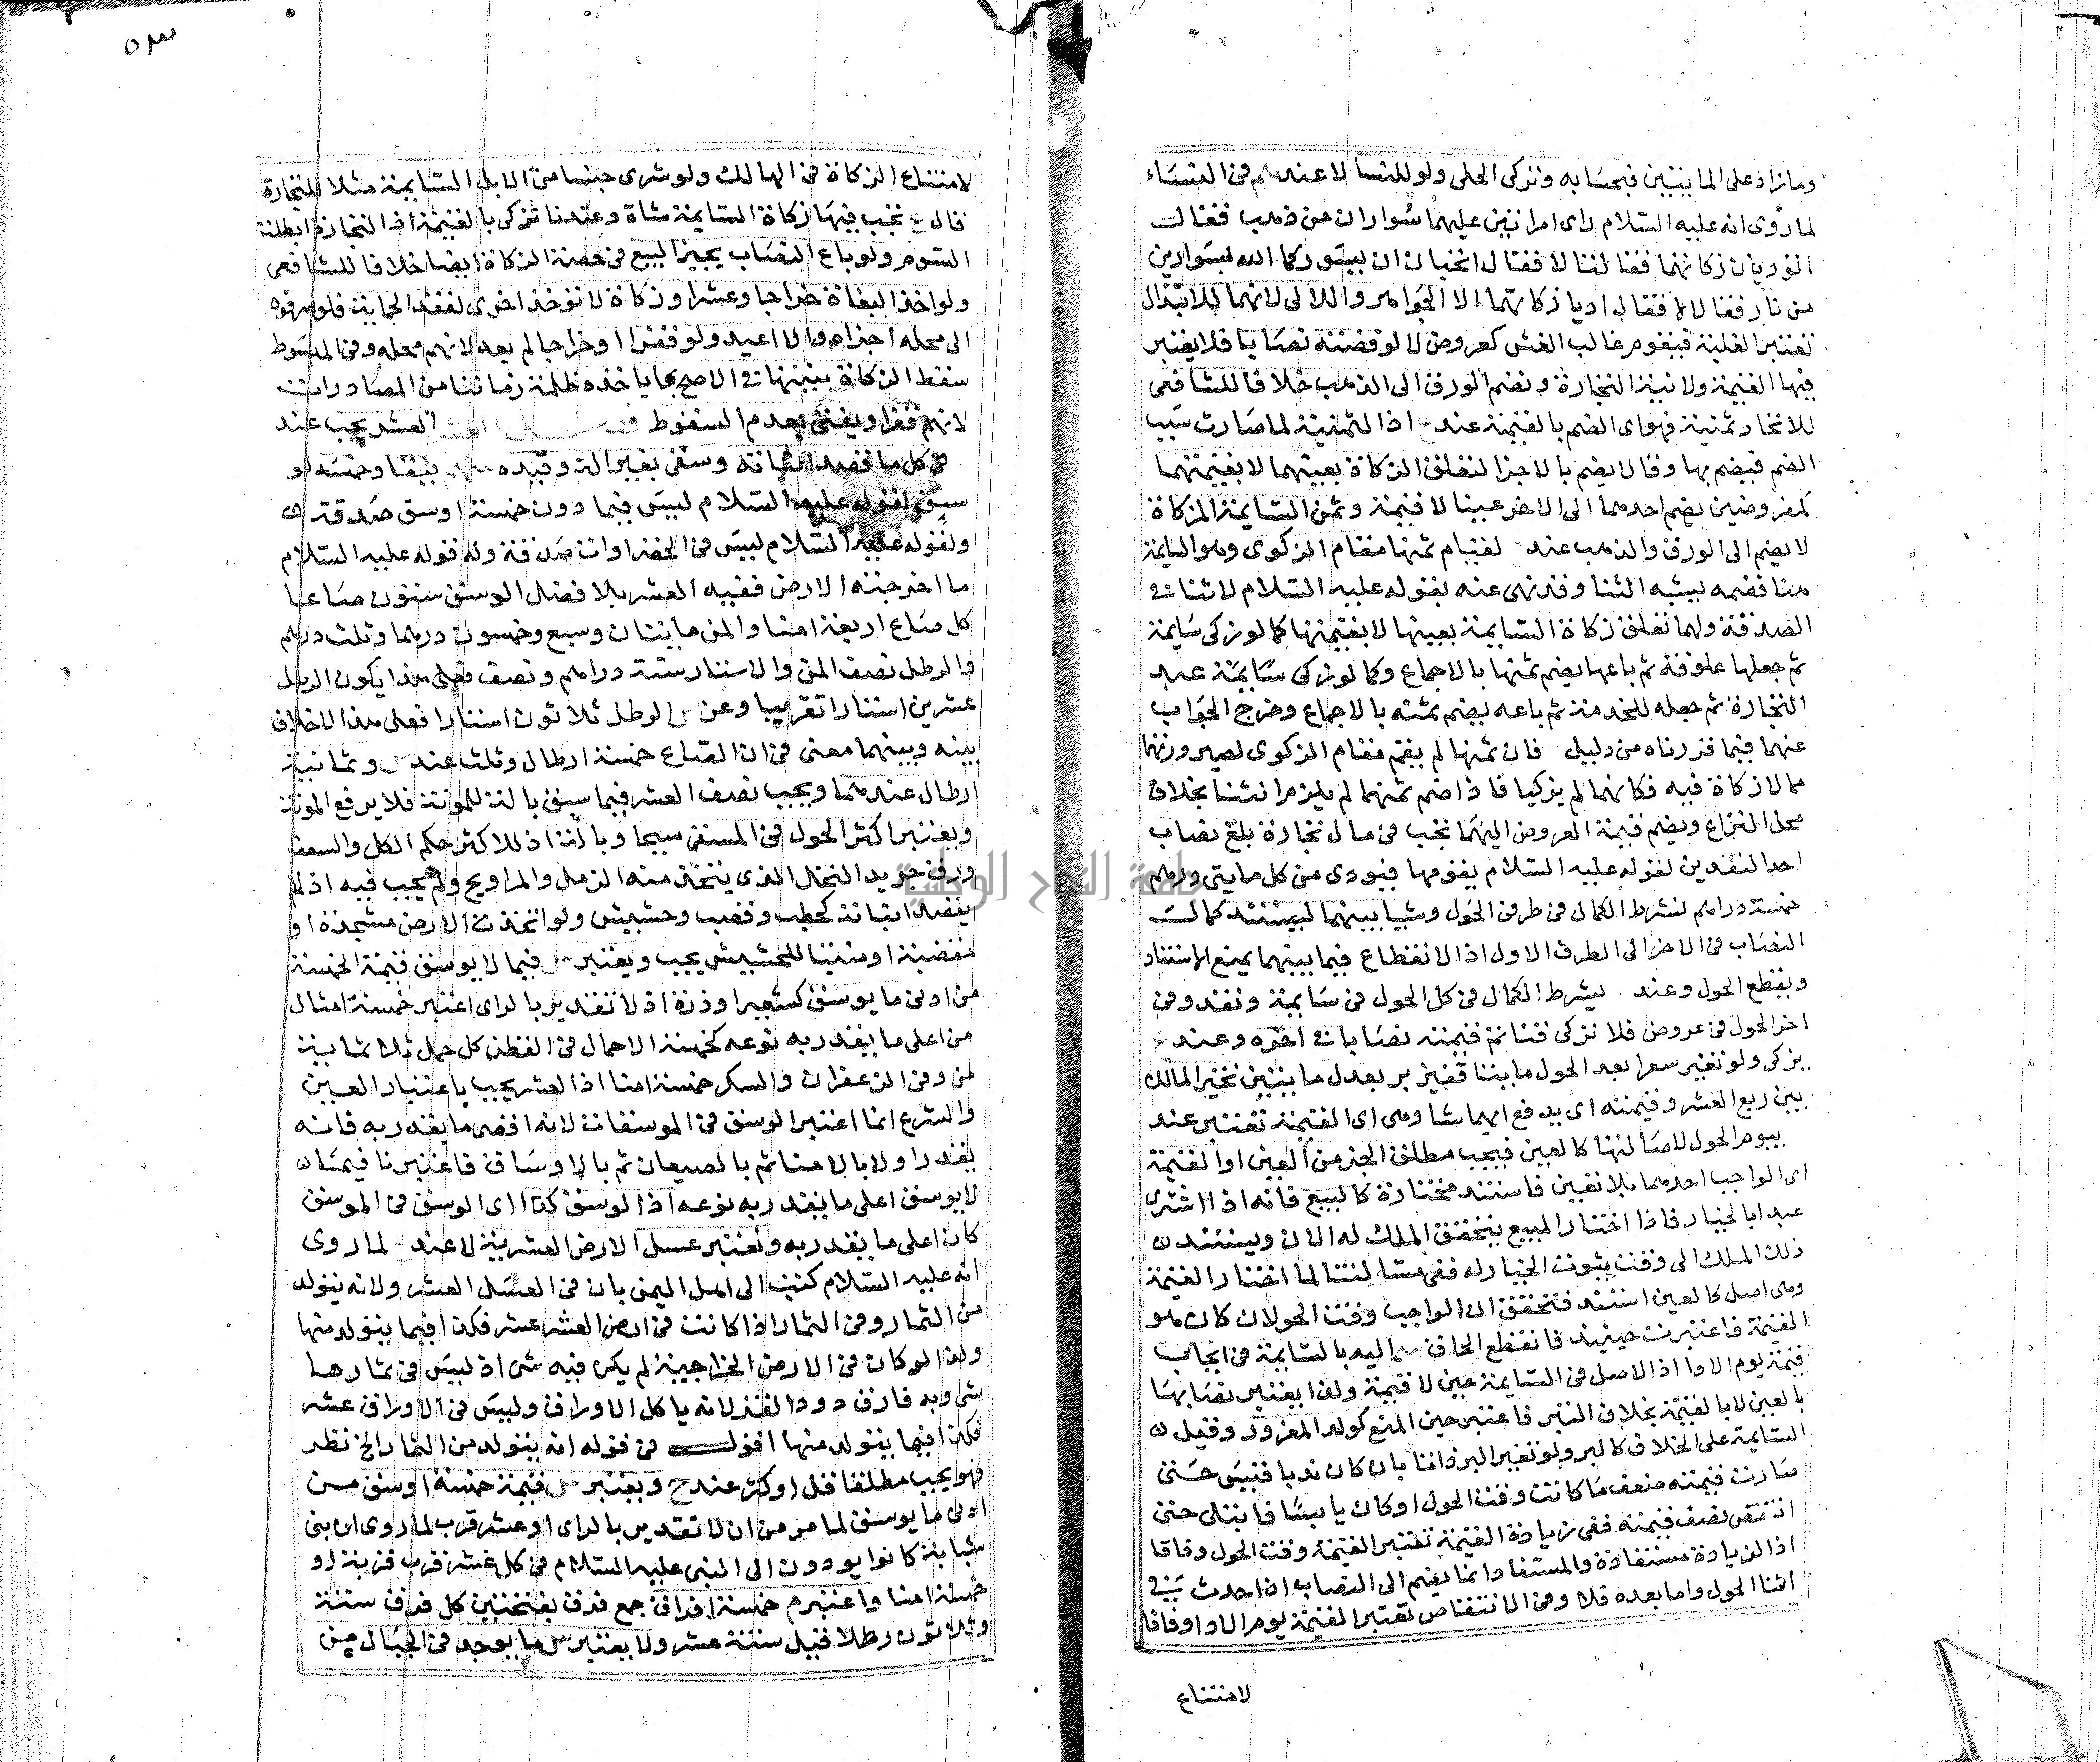 وما زاد على المايتين فبحسابه وتزكى الحلى ولو للنسا لا عندهم في النساء
لما روى انه عليه السلام راى امراتين عليهما سواران من ذهب فقال
اتوديان زكاتهما فقالتا لا فقال اتحبان ان يسوركما الله بسوارين
من نار فقالا لا فقال اديا زكاتهما لا الجواهر واللالى لانهما للابتذال
تعتبر الغلبة فيقوم غالب الغش كعروض لا لو فضته نصابا فلا يعتبر
فيها القيمة ولا نية التجارة ونضم الورق الى الذهب خلافا للشافعى
للاتحاد ثمنية فهو اى الضم بالقيمة عند اذ الثمنية لما صارت سبب
الضم فيضم بها وقالا يضم بالاجزا لتعلق الزكاة بعينهما لا بقيمتهما
كمقروضين يضم احدهما الى الاخر عينا لا قيمة وثمن السايمة المزكاة
لا يضم الى الورق والذهب عند لقيام ثمنها مقام الزكوى وهو السايمة
هنا فضمه يشبه الثنا وقد نهى عنه بقوله عليه السلام لا ثنا في
الصدقة ولهما تعلق زكاة السايمة بعينها لا بقيمتها كما لو زكى سايمة
ثم جعلها علوفة ثم باعها يضم ثمنها بالاجماع وكما لو زكى سايمة عبد
التجارة ثم جعله للخدمة ثم باعه يضم ثمنه بالاجماع وخرج الجواب
عنهما فيما قررناه من دليل فان ثمنها لم يقم مقام الزكوى لصيرورتها
مما لا زكاة فيه فكانهما لم يزكيا فاذا ضم ثمنهما لم يلزم اثنا بخلاف
محل النزاع ويضم قيمة العروض اليهما تجب في مال تجارة بلغ نصاب
احد النقدين لقوله عليه السلام يقومها فيودى من كل مايتى درهم
خمسة دراهم لشرط الكمال في طرفى الحول وشيا بينهما ليستند كمال
النصاب في الاخر الى الطرف الاول اذ الانقطاع فيما بينهما يمنع الاستناد
ويقطع الحول وعند يشرط الكمال في كل الحول في سايمة ونقد وفى
اخر الحول في عروض فلا تزكى قيمته نصابا في اخره وعند
يزكى ولو تغير سعرا بعد الحول مايتا قفيز بر بعدل مايتين تخير المالك
بين ربع العشر وقيمته اى يدفع ايهما شا وهى اى القيمة تعتبر عند
بيوم الحول لاصالتها كالعين فيجب مطلق الجزء من العين او القيمة
اى الواجب احدهما بلا تعيين فاستند مختاره كالبيع فانه اذا اشترى
عبدا بالخيار فاذا اختار المبيع يتحقق الملك له الان ويستند
ذلك الملك الى وقت ثبوت الخيار له ففى مسالتنا لما اختار القيمة
وهى اصل كالعين استند فتحقق ان الواجب وقت الحولان كان هو
القيمة فاعتبرت حينيذ فانقطع الحاق اليه بالسايمة في ايجاب
قيمة يوم الادا اذ الاصل في السايمة عين لا قيمة ولذا يعتبر نصابها
بالعين لا بالقيمة بخلاف التبر فاعتبر حين المنع كولد المغرور وقيل
السايمة على الخلاف كالبر ولو تغير البر ذاتا بان كان نديا فيبس حتى
صارت قيمته ضعف ما كانت وقت الحول او كان يابسا فابتل حتى
انتقص نصف قيمته ففى زيادة القيمة تعتبر القيمة وقت الحول وفاقا
اذ الزيادة مستفادة والمستفاد انما يضم الى النصاب اذا حدث في
اثنا الحول واما بعده فلا وفى الانتقاص تعتبر القيمة يوم الادا وفاقا
لامتناع
لامتناع الزكاة في الهالك ولو شرى خمسا من الابل السايمة مثلا للتجارة
قال تجب فيها زكاة السايمة شاة وعندنا تزكى بالقيمة اذ التجارة ابطلت
السوم ولو باع النصاب يجيز البيع في حصة الزكاة ايضا خلافا للشافعى
ولو اخذ البغاة خراجا وعشرا وزكاة لا نوخذ اخرى لفقد الحماية فلو صرفوه
الى محله اجزاه والا اعيد ولو فقرا او خراجا لم يعد لانهم محله وفى المبسوط
سقط الزكاة بنيتها في الاصح بما ياخذه ظلمة زماننا من المصادرات
لانهم فقرا ويفتى بعدم السقوط العشر يجب عند
في كل ما قصد انباته وسقى بغير الة وقيده ببقا وخمسة او
سق لقوله عليه السلام ليس فيما دون خمسة اوسق صدقة
ولقوله عليه السلام ليس في الخضراوات صدقة وله قوله عليه السلام
ما اخرجته الارض ففيه العشر بلا فصل الوسق ستون صاعا
كل صاع اربعة امنا والمن مايتان وسبع وخمسون درهما وثلث درهم
والرطل نصف المن والاستار ستة دراهم ونصف فعلى هذا يكون الرطل
عشرين استارا تقريبا وعن الرطل ثلاثون استارا فعلى هذا لا خلاف
بينه وبينهما معنى في ان الصاع خمسة ارطال وثلث عند وثمانية
ارطال عندهما ويجب نصف العشر فيما سقى بالة للمونة فلا يرفع المونة
ويعتبر اكثر الحول في المسقى سيحا وبالة اذ للاكثر حكم الكل والسعف
ورق جريد النخل الذى يتخذ منه الزمل والمراويح ولم يجب فيه اذ لم
يقصد انباته كحطب وقصب وحشيش ولو اتخذت الارض مشجرة او
مقصبة او منبتا للحشيش يجب ويعتبر فيما لا يوسق قيمة الخمسة
من ادنى ما يوسق كشعير او ذرة اذ لا تقدير بالراى اعتبر خمسة امثال
من اعلى ما يقدر به نوعه كخمسة الاحمال في القطن كل حمل ثلاثماية
من وفى الزعفران والسكر خمسة امنا اذ العشر يجب باعتبار العين
والشرع انما اعتبر الوسق في الموسقات لانه اقصى ما يقدر به فانه
يقدر اولا بالامنا ثم بالصيعان ثم بالاوساق فاعتبرنا فيما
لا يوسق اعلى ما يقدر به نوعه اذ الوسق كذا اى الوسق في الموسق
كان اعلى ما يقدر به وتعتبر عسل الارض العشرية لا عند لما روى
انه عليه السلام كتب الى اهل اليمن بان في العسل العشر ولانه يتولد
من الثمار وفى الثمار اذا كانت في ارض العشر عشر فكذا فيما يتولد منها
ولهذا لو كان في الارض الخراجية لم يكن فيه شى اذ ليس في ثمارها
شى وبه فارق دود القز لانه ياكل الاوراق وليس في الاوراق عشر
فكذا فيما يتولد منها اقول في قوله انه يتولد من الثمار الخ نظر
فهو يجب مطلقا قل او كثر عند ح ويعتبر قيمة خمسة اوسق من
ادنى ما يوسق لما مر من ان لا تقدير بالراى او عشر قرب لما روى ان بنى
شبابة كانوا يودون الى النبى عليه السلام في كل عشر قرب قربة او
خمسة امنا واعتبرم خمسة افراق جمع فرق بفتحتين كل فرق ستة
وثلاثون رطلا قيل ستة عشر ولا يعتبر ما يوجد في الجبال من
جامعة النجاح الوطنية